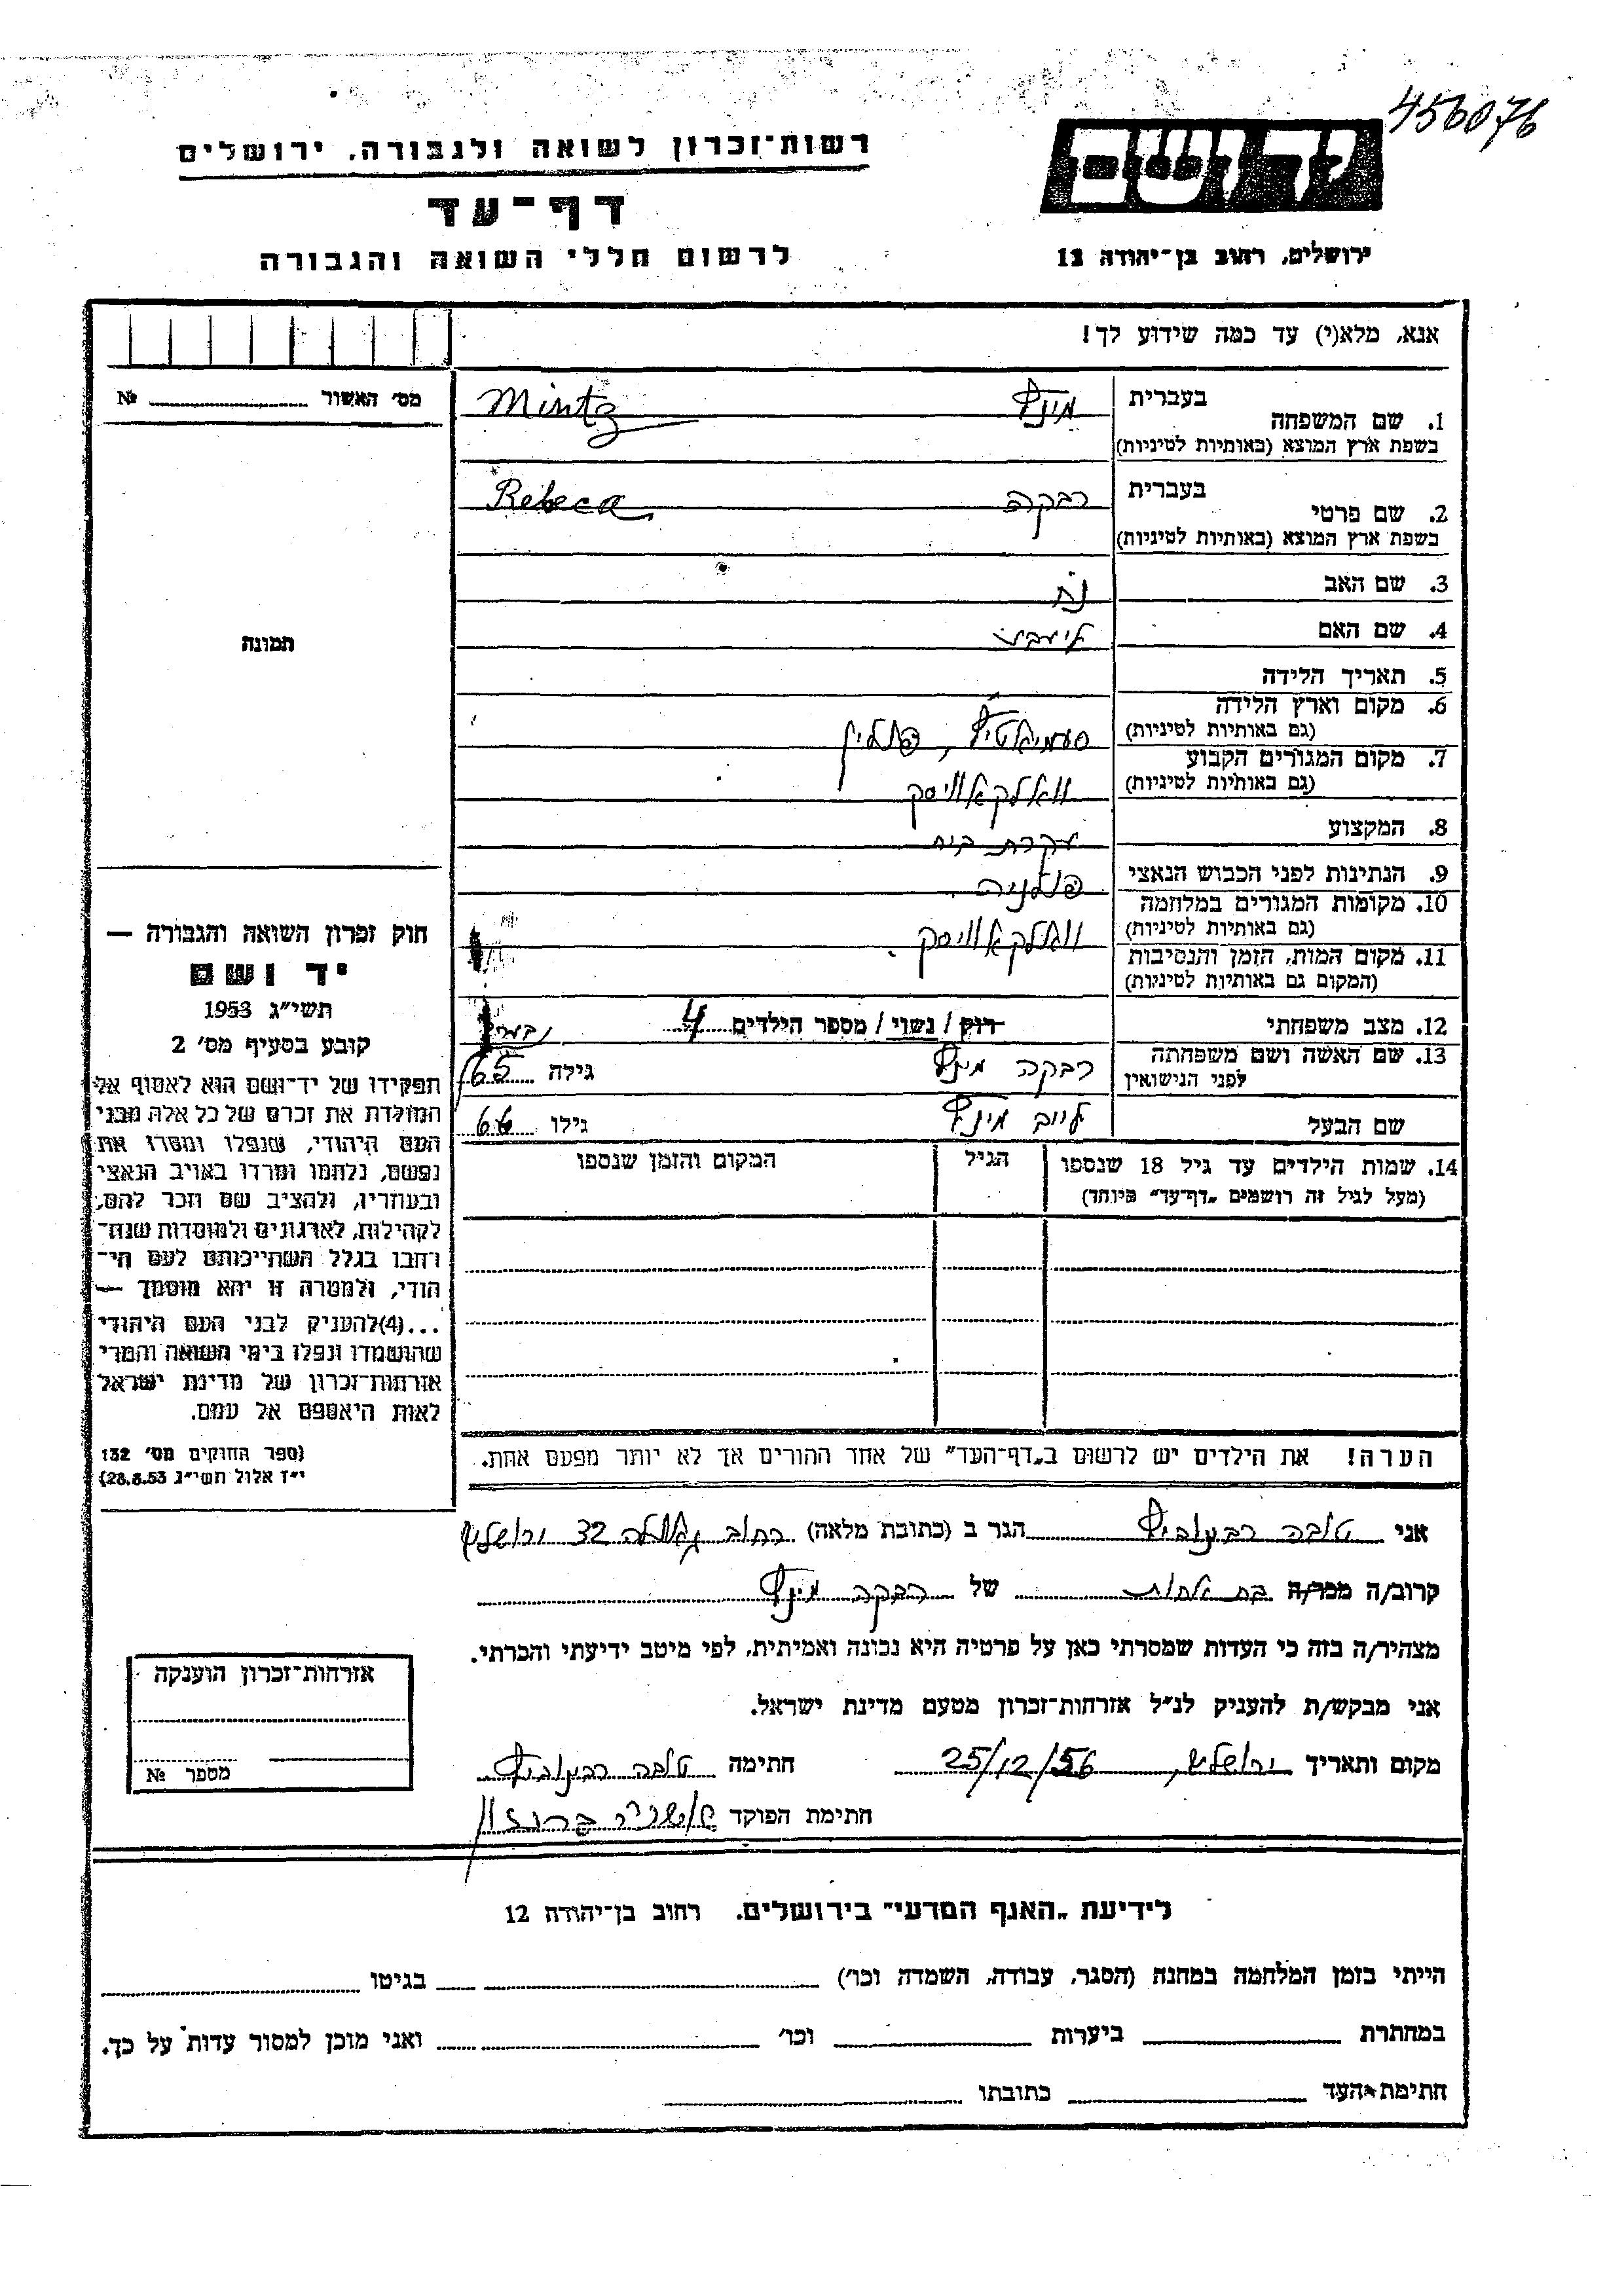 456076
יד ושם
ירושלים, רחוב בן־יהודה 12
רשות־זכרון לשואה ולגבורה, ירושלים
דף־עד
לרשום חללי השואה והגבורה
אנא, מלא(י) עד כמה שידוע לך!
מס' האשור № 
1. שם המשפחה בעברית מינץ Mintz
בשפת ארץ המוצא (באותיות לטיניות)
2. שם פרטי בעברית רבקה Rebeca
בשפת ארץ המוצא (באותיות לטיניות)
3. שם האב נח
4. שם האם
5. תאריך הלידה
6. מקום וארץ הלידה
(גם באותיות לטיניות) פולין
7. מקום המגורים הקבוע
(גם באותיות לטיניות) וואלקאוויסק
8. המקצוע עקרת בית
9. הנתינות לפני הכבוש הנאצי פולניה
10. מקומות המגורים במלחמה
(גם באותיות לטיניות) וואלקאוויסק.
11. מקום המות, הזמן והנסיבות
(המקום גם באותיות לטיניות)
12. מצב משפחתי רוק / נשוי / מספר הילדים 4
13. שם האשה ושם משפחתה
לפני הנישואין רבקה מינץ גילה 65
שם הבעל לייב מינץ גילו 66
14. שמות הילדים עד גיל 18 שנספו הגיל המקום והזמן שנספו
(מעל לגיל זה רושמים "דף־עד" מיוחד)
הערה! את הילדים יש לרשום ב"דף־העד" של אחד ההורים אך לא יותר מפעם אחת.
תמונה
חוק זכרון השואה והגבורה —
יד ושם
תשי"ג 1953
קובע בסעיף מס' 2
תפקידו של יד־ושם הוא לאסוף אל
המולדת את זכרם של כל אלה מבני
העם היהודי, שנפלו ומסרו את
נפשם, נלחמו ומרדו באויב הנאצי
ובעוזריו, ולהציב שם וזכר להם,
לקהילות, לארגונים ולמוסדות שנח־
רבו בגלל השתייכותם לעם הי־
הודי, ולמטרה זו יהא מוסמך —
...(4)להעניק לבני העם היהודי
שהושמדו ונפלו בימי השואה והמרי
אזרחות־זכרון של מדינת ישראל
לאות היאספם אל עמם.
(ספר החוקים מס' 132
י"ז אלול תשי"ג 28.8.53)
אני טובה רבינוביץ הגר ב (כתובת מלאה) רחוב גאולה 32 ירושלים
קרוב/ה מכר/ה בת אחות של רבקה מינץ
מצהיר/ה בזה כי העדות שמסרתי כאן על פרטיה היא נכונה ואמיתית, לפי מיטב ידיעתי והכרתי.
אני מבקש/ת להעניק לנ"ל אזרחות־זכרון מטעם מדינת ישראל.
מקום ותאריך ירושלים, 25/12/56 חתימה טובה רבינוביץ
חתימת הפוקד
אזרחות־זכרון הוענקה
מספר №
לידיעת "האגף המדעי" בירושלים. רחוב בן־יהודה 12
הייתי בזמן המלחמה במחנה (הסגר, עבודה, השמדה וכו') בגיטו
במחתרת ביערות וכו' ואני מוכן למסור עדות על כך.
חתימת העד כתובתו